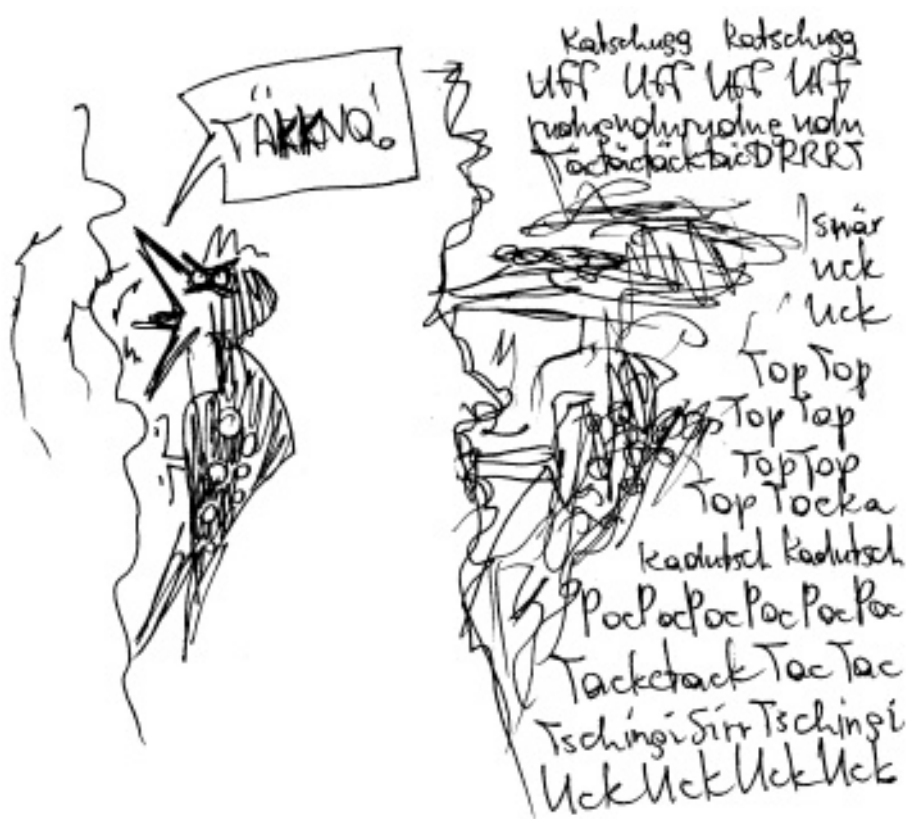 TÄKKNO!
Katschugg Katschugg
Uff Uff Uff Uff
TöctöctäcktäcDRRRT
snär
uck
Uck
Top Top
Top Top
TopTop
Top Tocka
Kadutsch Kadutsch
PocPocPocPocPocPoc
Tackctack Tac Tac
TschingiSirrTschingi
UckUckUckUck